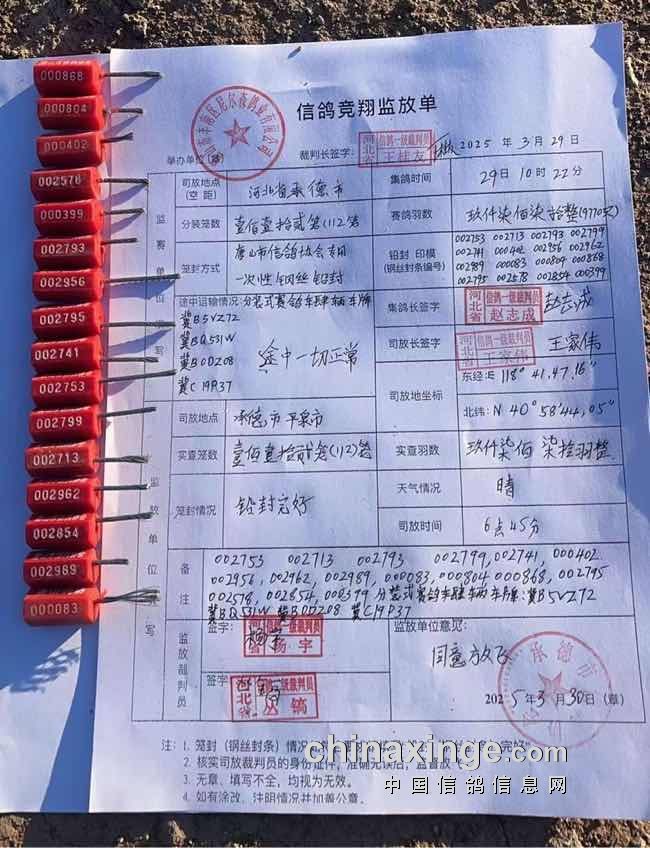 000868
000804
000402
002578
000399
002793
002956
002795
002741
002753
002799
002713
002962
002854
002989
000083
信鸽竞翔监放单
举办单位(章)
裁判长签字:
河北省
信鸽一级裁判员
王桂友
2025 年 3月 29日
监赛单位填写
司放地点(空距)
河北省承德市
集鸽时间
29日10时22分
分装笼数
壹佰壹拾贰笼(112笼)
赛鸽羽数
玖仟柒佰柒拾整(9770只)
笼封方式
唐山市信鸽协会专用
一次性钢丝铅封
铅封 印模
(钢丝封条编号)
002753 002713 002793 002799
002741 000402 002956 002962
002989 000083 000804 000868
002795 002578 002854 000399
途中运输情况:分装式赛鸽车肆辆车牌
冀B5VZ72
冀BQ531W
冀B0DZ08
冀C19P37
途中一切正常
集鸽长签字
河北省
信鸽一级裁判员
赵志成
赵志成
司放长签字
王家伟
王家伟
司放地坐标
东经:E 118°41,47.16"
北纬:N 40°58'44,05"
监放单位填写
司放地点
承德市平泉市
实查笼数
壹佰壹拾贰笼(112)笼
实查羽数
玖仟柒佰柒拾羽整
笼封情况
铅封完好
天气情况
晴
司放时间
6点45分
备注
002753 002713 002793 002799,002741,000402
002956,002962,002989,000083,000804 000868,002795
002578,002854,000399 分装式赛鸽车肆辆车牌:冀B5VZ72
冀BQ531W 冀B0DZ08 冀C19P37
监放裁判员
签字:
信鸽一级裁判员
杨宇
签字
河北省
丛镐
监放单位意见:
同意放飞
承德市
2025年3月30日(章)
注:1. 笼封(钢丝封条)情况
完好"
2. 核实司放裁判员的身份证件,准确无误后,监督放飞。
3. 无章、填写不全,均视为无效。
4. 如有涂改、注明情况并加盖公章。
chinaxinge.com
中国信鸽信息网